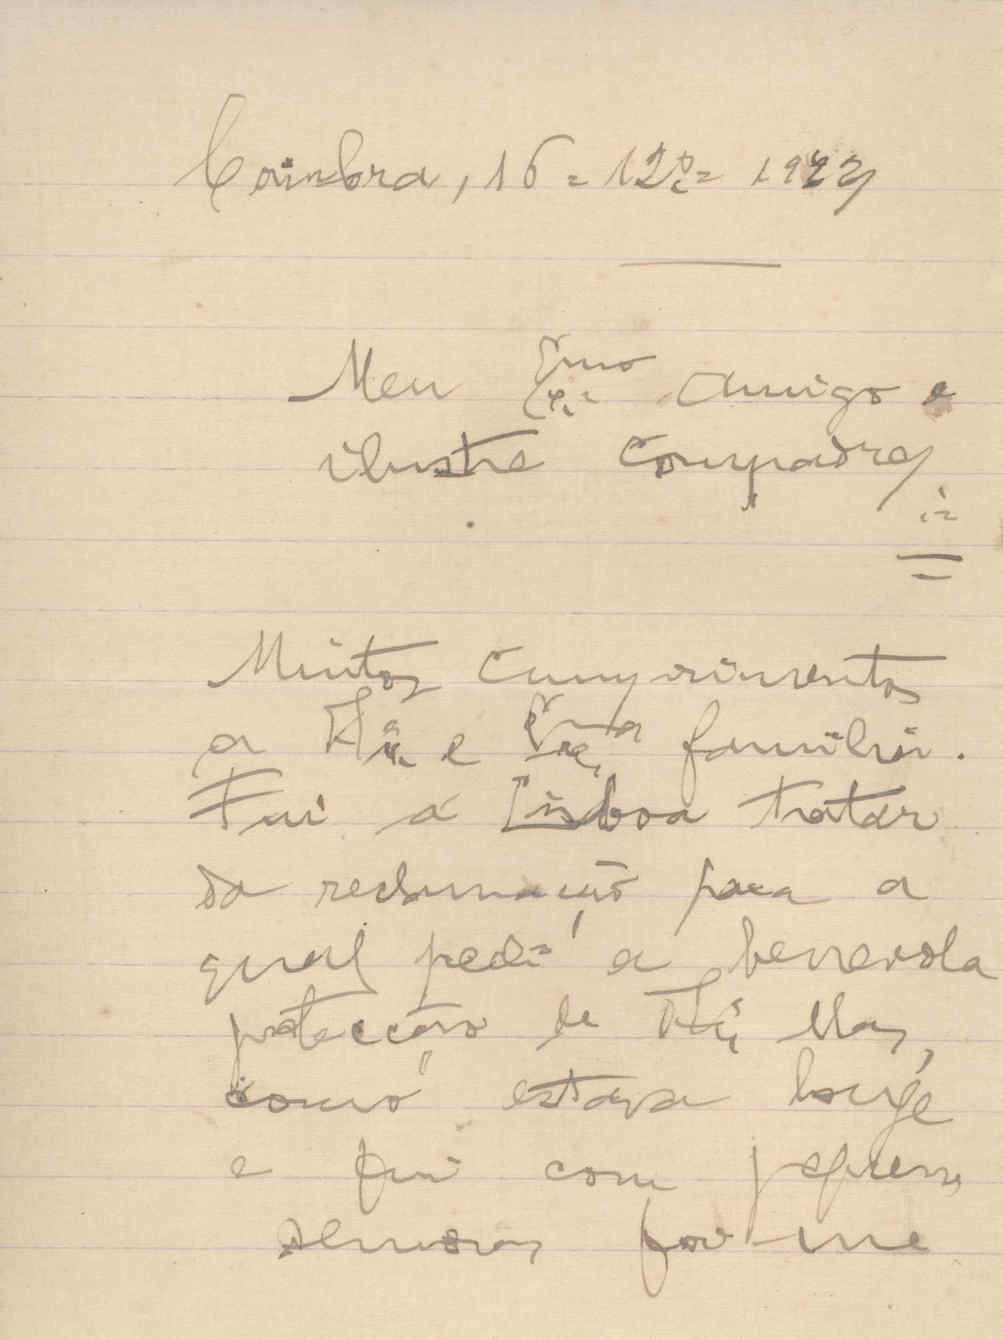 Coimbra, 16 = 12º = 1923
Meu Exmo amigo e
ilustre Compadre
Muitos cumprimentos
a V. Ex.ª e Exma familia.
Fui a Lisboa tratar
da reclamação para a
qual pedi a benevola
protecção de V. Ex.ª Mas,
como estava longe
e fui com pequena
demora, foi-me